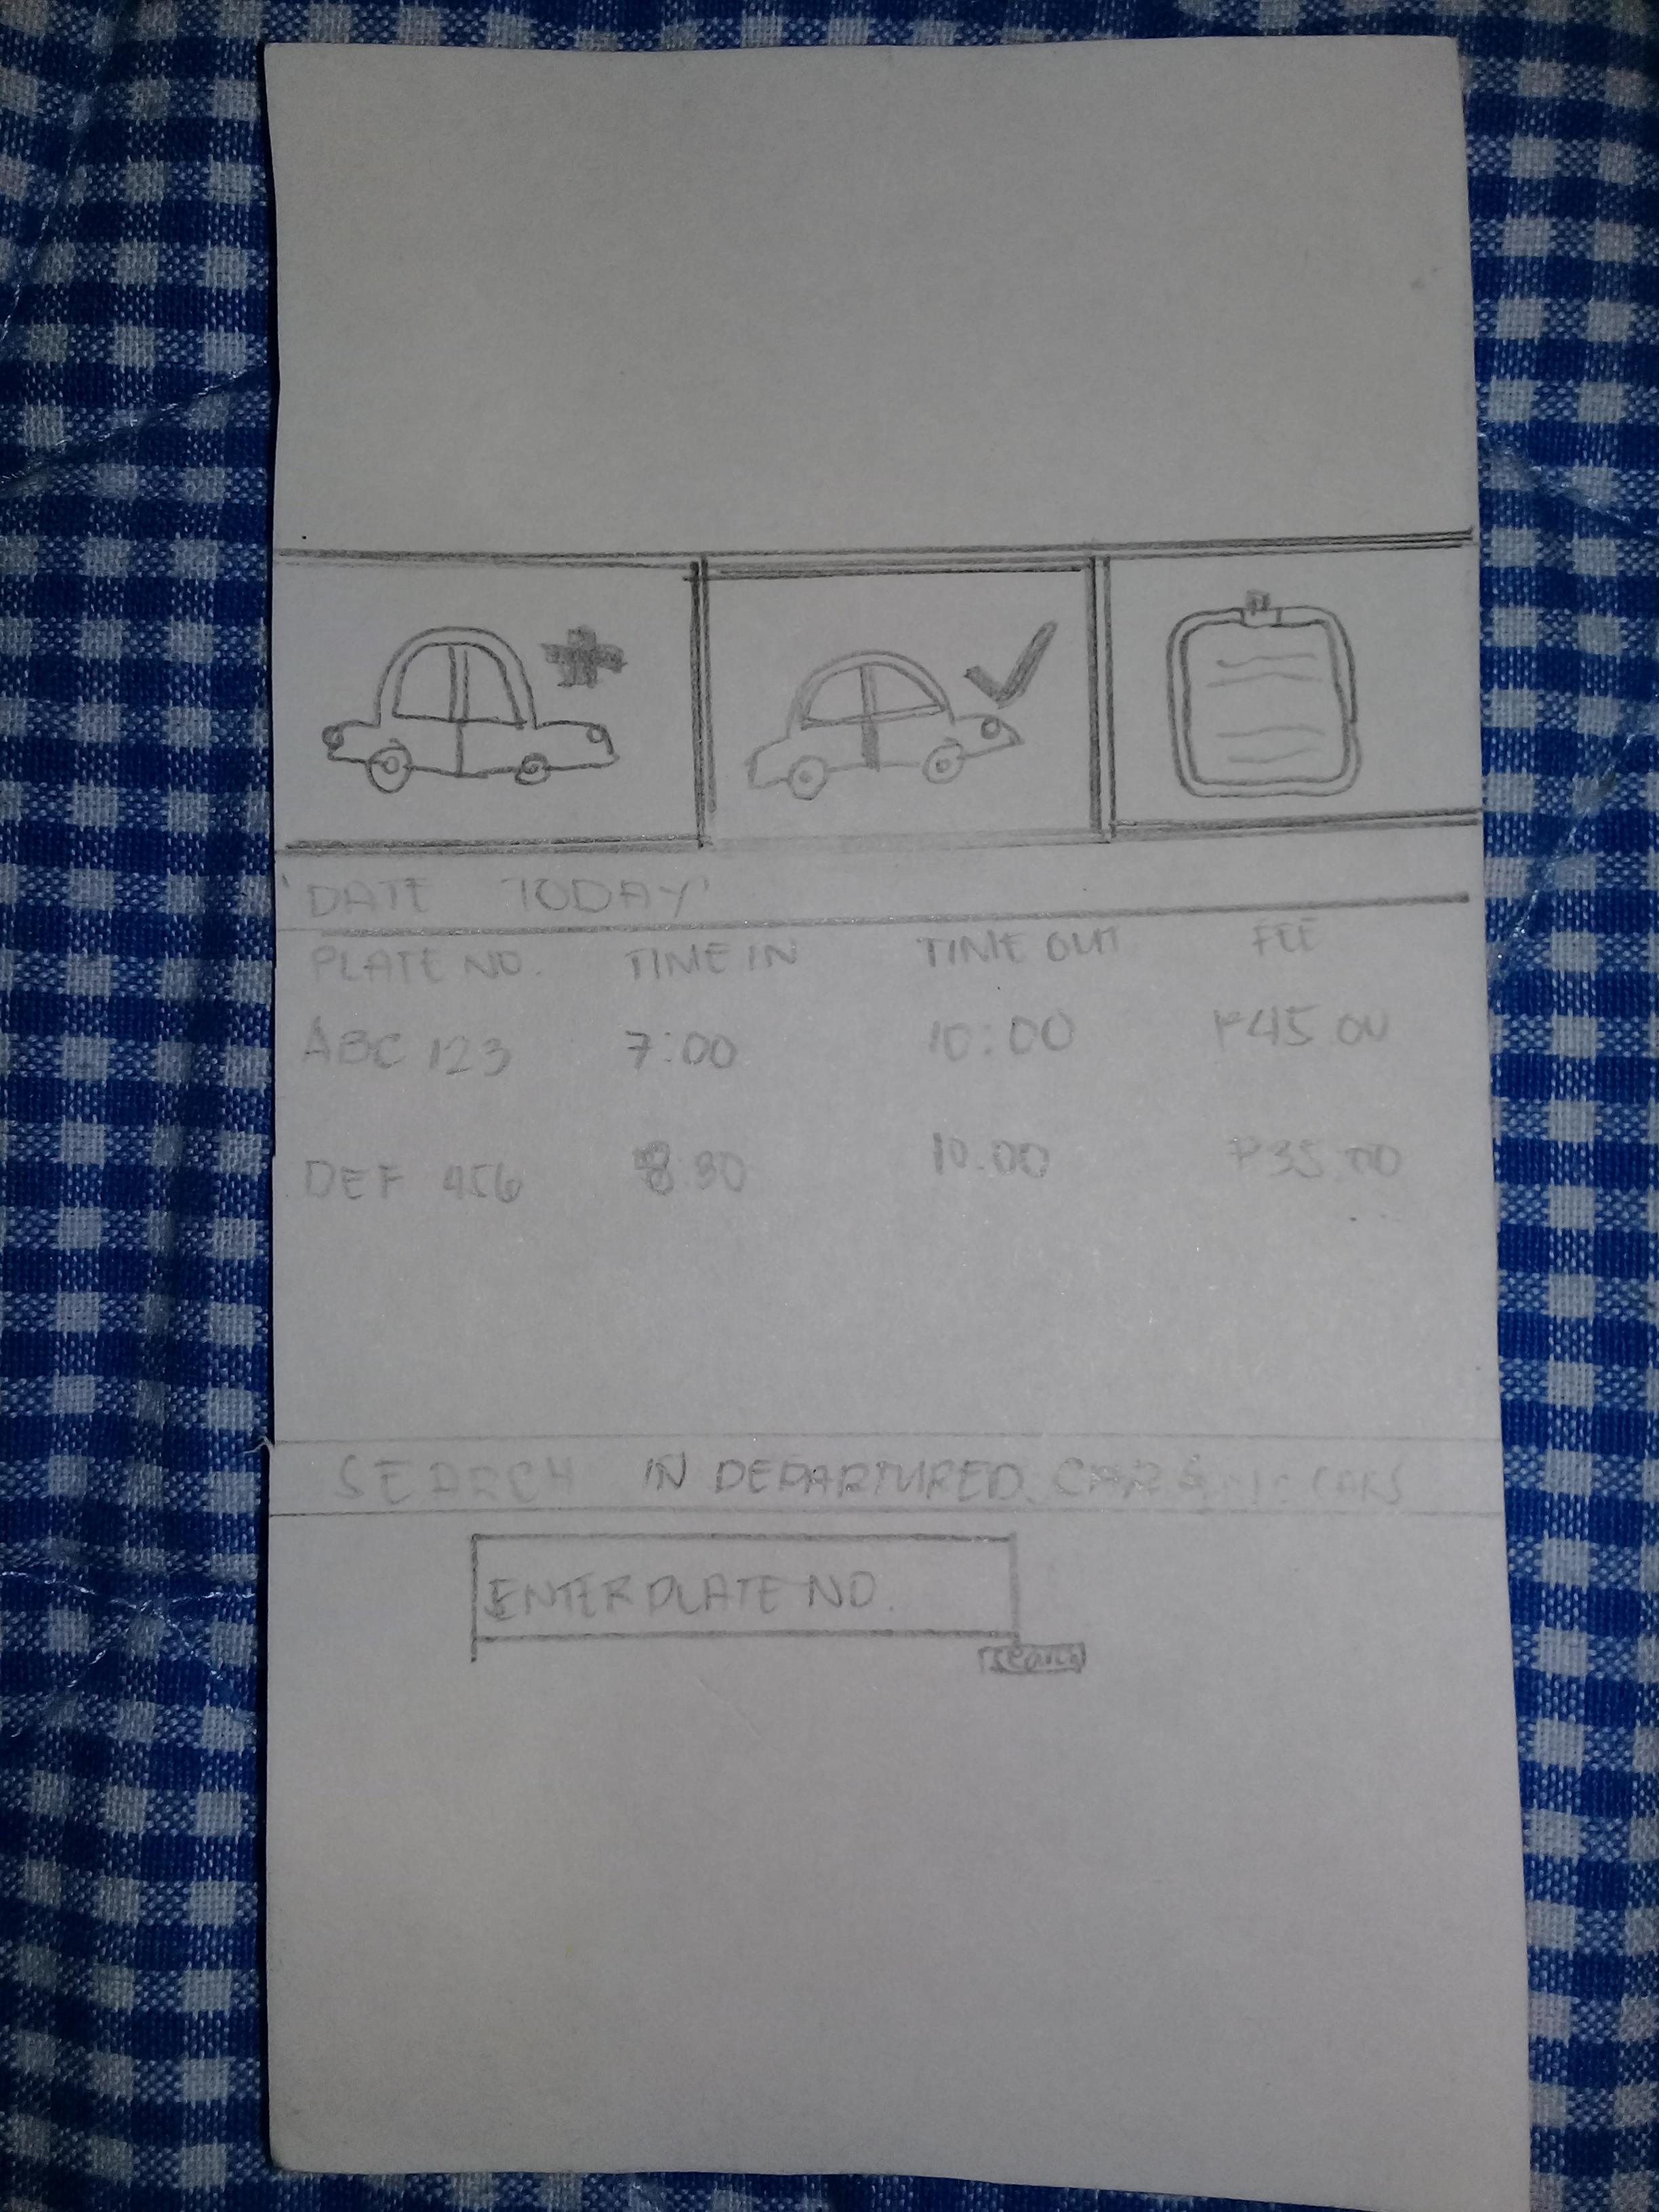 'DATE TODAY'
PLATE NO. TIME IN TIME OUT FEE
ABC 123 7:00 10:00 ₱45 00
DEF 456 8:30 10.00 ₱35.00
SEARCH IN DEPARTURED CARS CARS
ENTER PLATE NO.
search